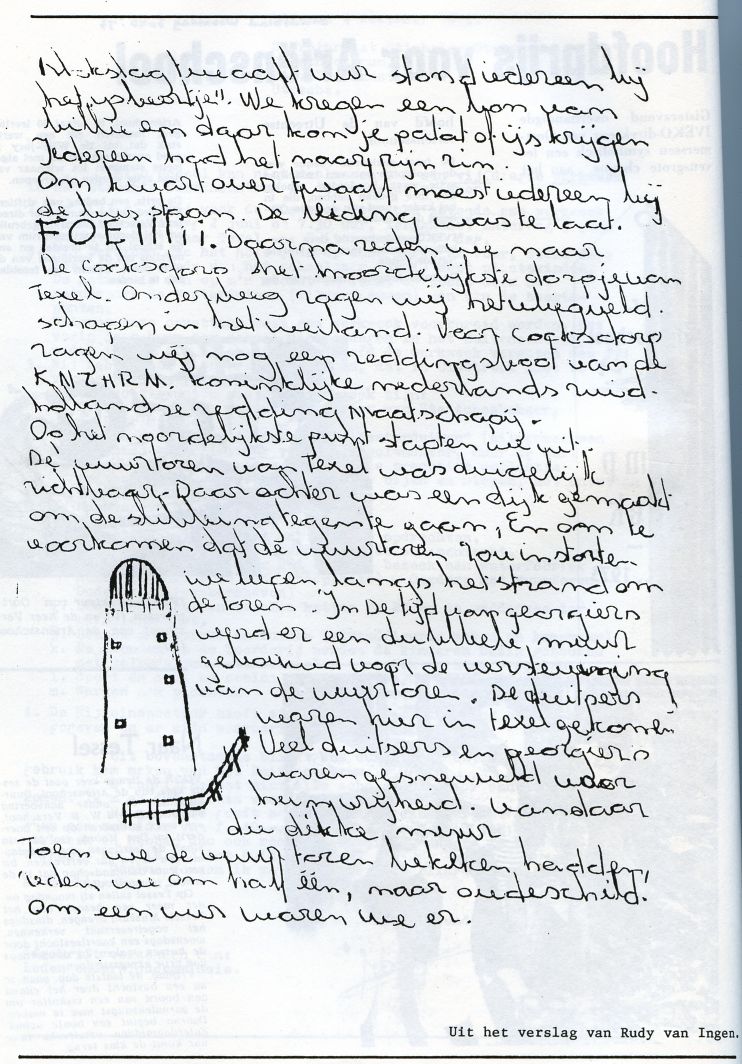 Klokslag twaalf uur stond iedereen bij
het ijskoortje". We kregen een bon van
jullie en daar kon je patat of ijs krijgen
Iedereen had het naar zijn zin.
Om kwart over twaalf moest iedereen bij
de bus staan. De leiding was te laat.
FOEIIIII. Daarna reden we naar
De cocksdorp het noordelijkste dorpje van
Texel. Onderweg zagen wij het vliegveld.
schapen in het weiland. Voor Cocksdorp
zagen wij nog een reddingsboot van de
KNZHRM. koninklijke nederlands zuid-
hollandse redding Maatschapij.
Op het noordelijkste punt stapten we uit.
De vuurtoren van Texel was duidelijk
zichtbaar. Daar achter was een dijk gemaakt
om de slibbing tegen te gaan, En om te
voorkomen dat de vuurtoren zou instorten.
we liepen langs het strand om
de toren. In De tijd van georgiers
werd er een dubbele muur
gebouwd voor de versteviging
van de vuurtoren. De duitsers
waren hier in texel gekomen
Veel duitsers en georgiers
waren gesneuveld voor
hun vrijheid. vandaar
die dikke muur
Toen we de vuurtoren bekeken hadden,
reden we om half één, naar oudeschild.
Om een uur waren we er.
Uit het verslag van Rudy van Ingen.